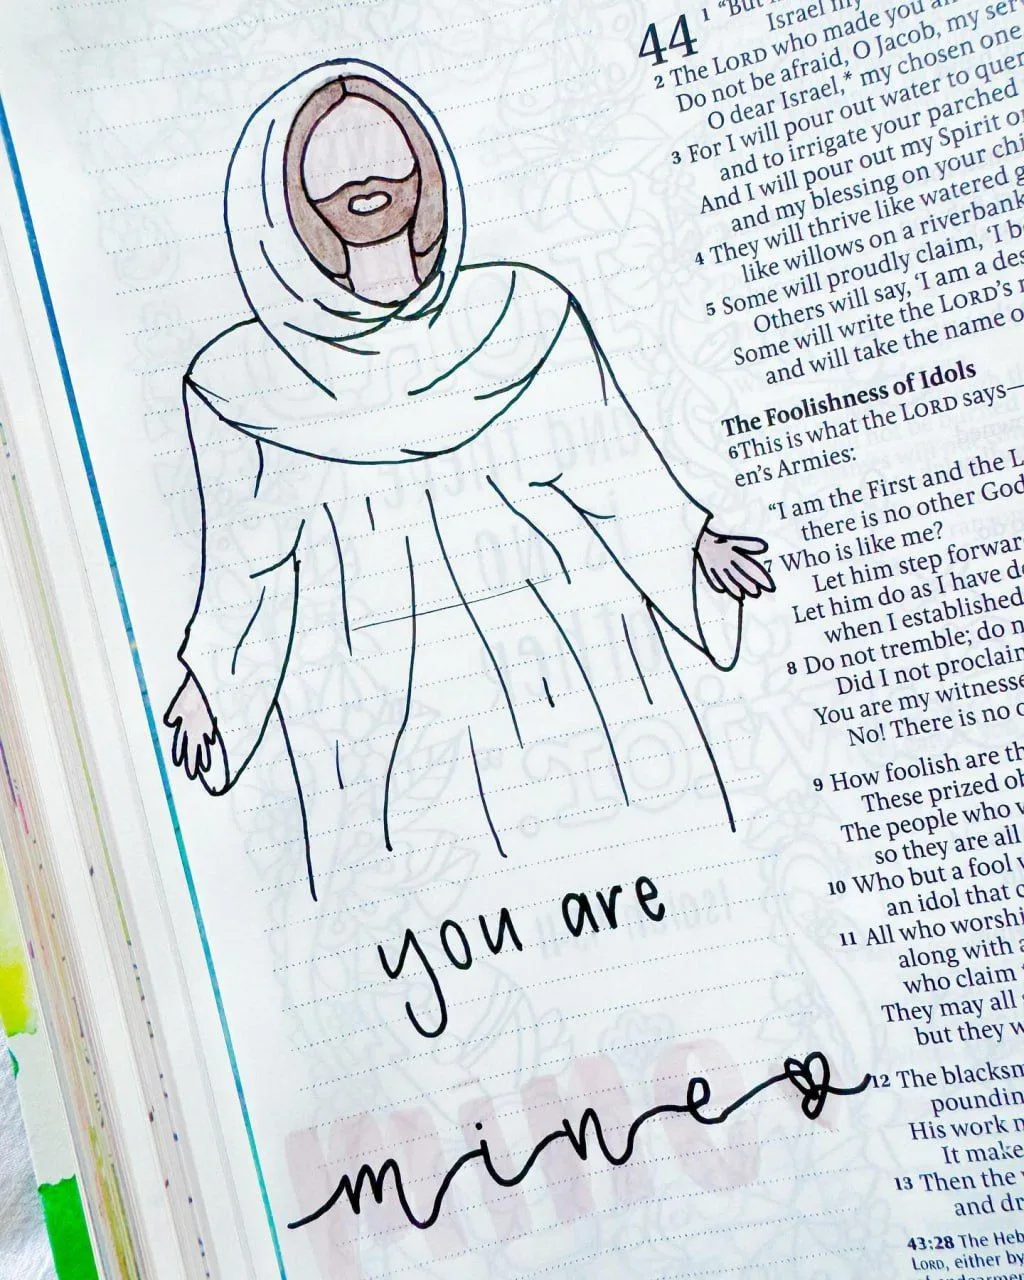 you are
mine
44
1 "But
Israel my
2 The LORD who made you
Do not be afraid, O Jacob, my
O dear Israel,* my chosen one
3 For I will pour out water to
and to irrigate your parched
And I will pour out my Spirit
and my blessing on your
4 They will thrive like watered
like willows on a riverbank
5 Some will proudly claim, 'I
Others will say, 'I am a
Some will write the LORD's
and will take the name
The Foolishness of Idols
6 This is what the LORD says—
en's Armies:
"I am the First and the
there is no other God
7 Who is like me?
Let him step forward
Let him do as I have
when I established
8 Do not tremble; do
Did I not proclaim
You are my
No! There is no
9 How foolish are
These prized
The people who
so they are all
10 Who but a fool
an idol that
11 All who
along with
who claim
They may all
but they
12 The
His work
It
13 Then the
and
43:28 The
LORD, either by